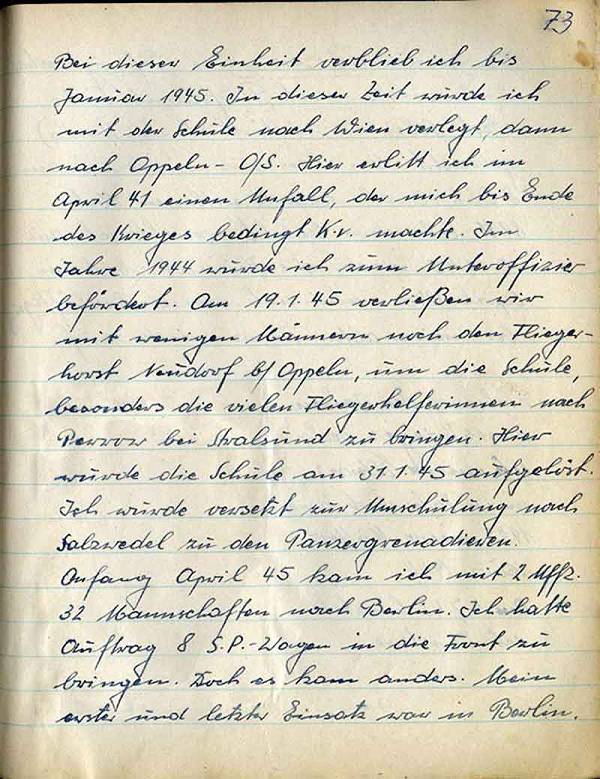 73
Bei dieser Einheit verblieb ich bis
Januar 1945. In dieser Zeit wurde ich
mit der Schule nach Wien verlegt, dann
nach Oppeln - O/S. Hier erlitt ich im
April 41 einen Unfall, der mich bis Ende
des Krieges bedingt K.v. machte. Im
Jahre 1944 wurde ich zum Unteroffizier
befördert. Am 19.1.45 verließen wir
mit wenigen Männern noch den Flieger-
horst Neudorf b/ Oppeln, um die Schule,
besonders die vielen Fliegerhelferinnen nach
Perrow bei Stralsund zu bringen. Hier
wurde die Schule am 31.1.45 aufgelöst.
Ich wurde versetzt zur Umschulung nach
Salzwedel zu den Panzergrenadieren.
Anfang April 45 kam ich mit 2 Uffz.
32 Mannschaften nach Berlin. Ich hatte
Auftrag 8 S.P.-Wagen in die Front zu
bringen. Doch es kam anders. Mein
erster und letzter Einsatz war in Berlin.